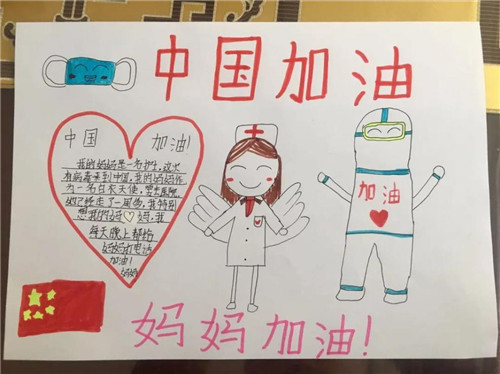 中国加油
中国 加油!
我的妈妈是一名护士,这次
有病毒来到中国,我的妈妈作
为一名白衣天使,要去医院,
她已经走了一周多,我特别
想我的妈妈,我
每天晚上都给
妈妈打电话
加油!
妈妈
加油
妈妈加油!